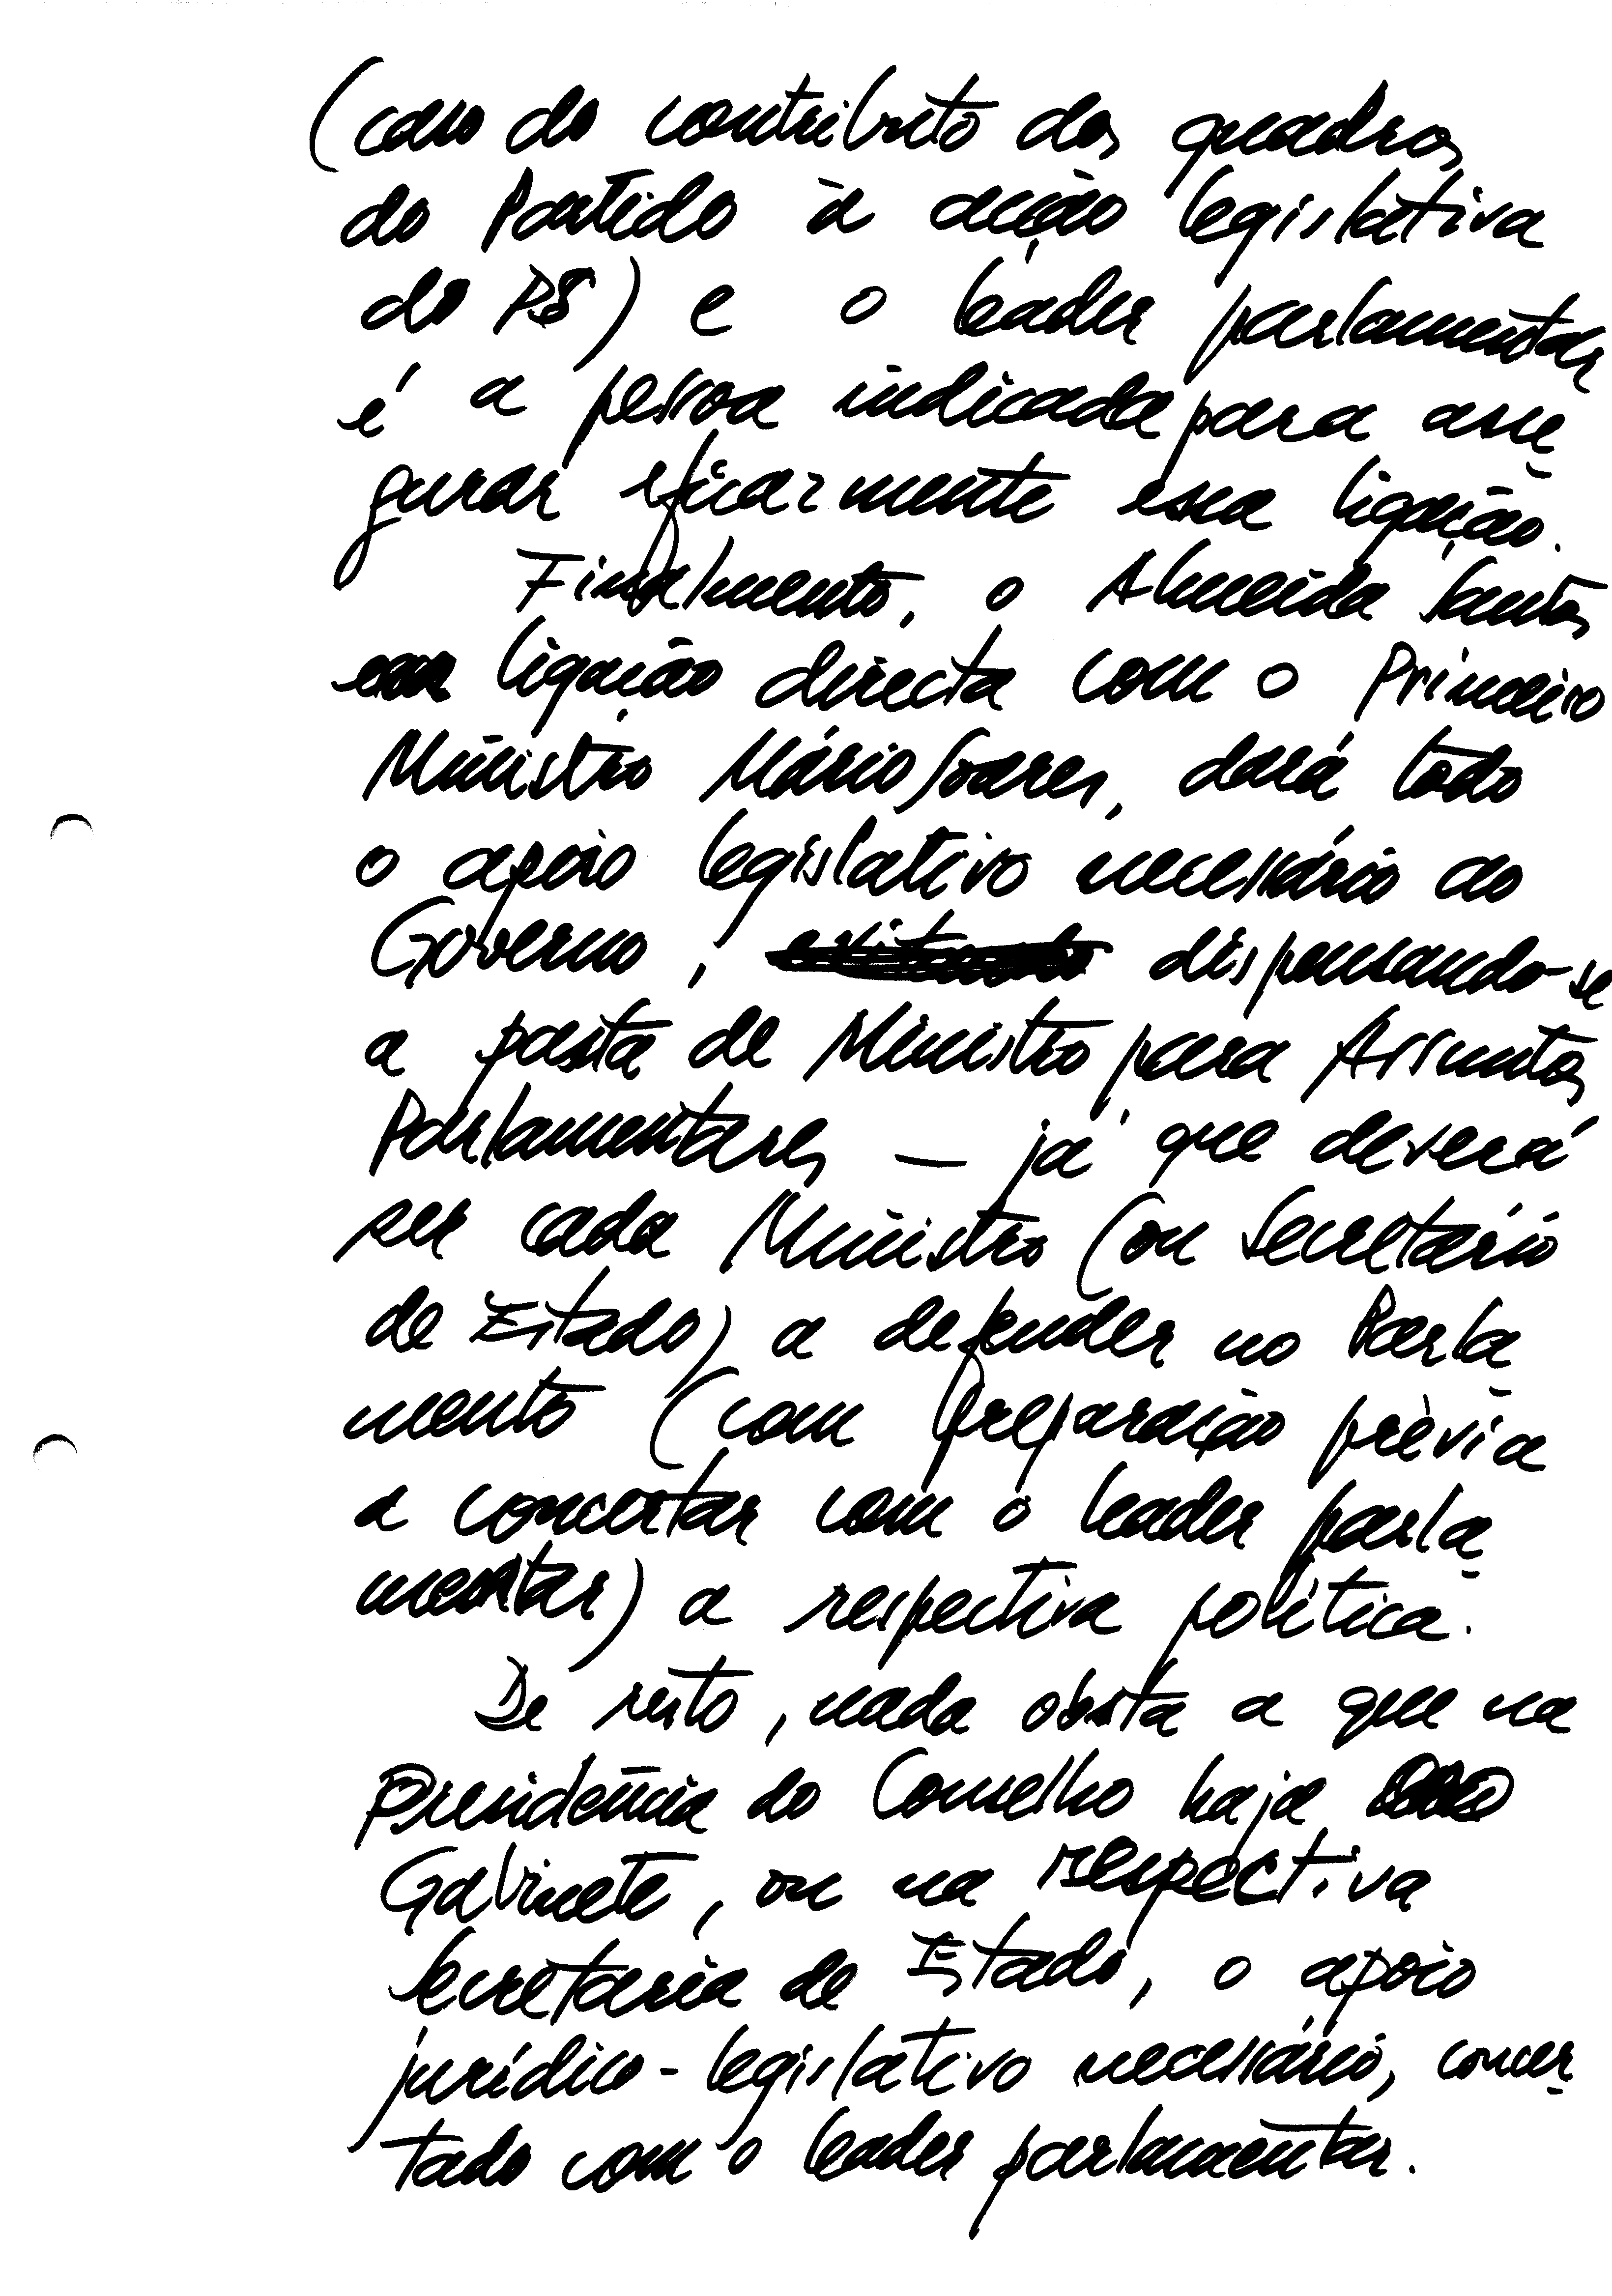 (caso do contributo dos quadros
do Partido à acção legislativa
do PS) e o leader parlamentar
é a pessoa indicada para asse
gurar eficazmente essa ligação.
Finalmente, o Almeida Santos
em ligação directa com o Primeiro
Ministro Mário Soares, dará todo
o apoio legislativo necessário ao
Governo, evitando dispensando-se
a pasta de Ministro para Assuntos
Parlamentares — já que deverá
ser cada Ministro (ou Secretário
de Estado) a defender no Parla
mento (com preparação prèvia
a concertar com o leader parla
mentar) a respectiva política.
De resto, nada obsta a que na
Presidência do Conselho haja
Gabinete, ou na respectiva
Secretaria de Estado, o apoio
jurídico-legislativo necessário, concer
tado com o leader parlamentar.